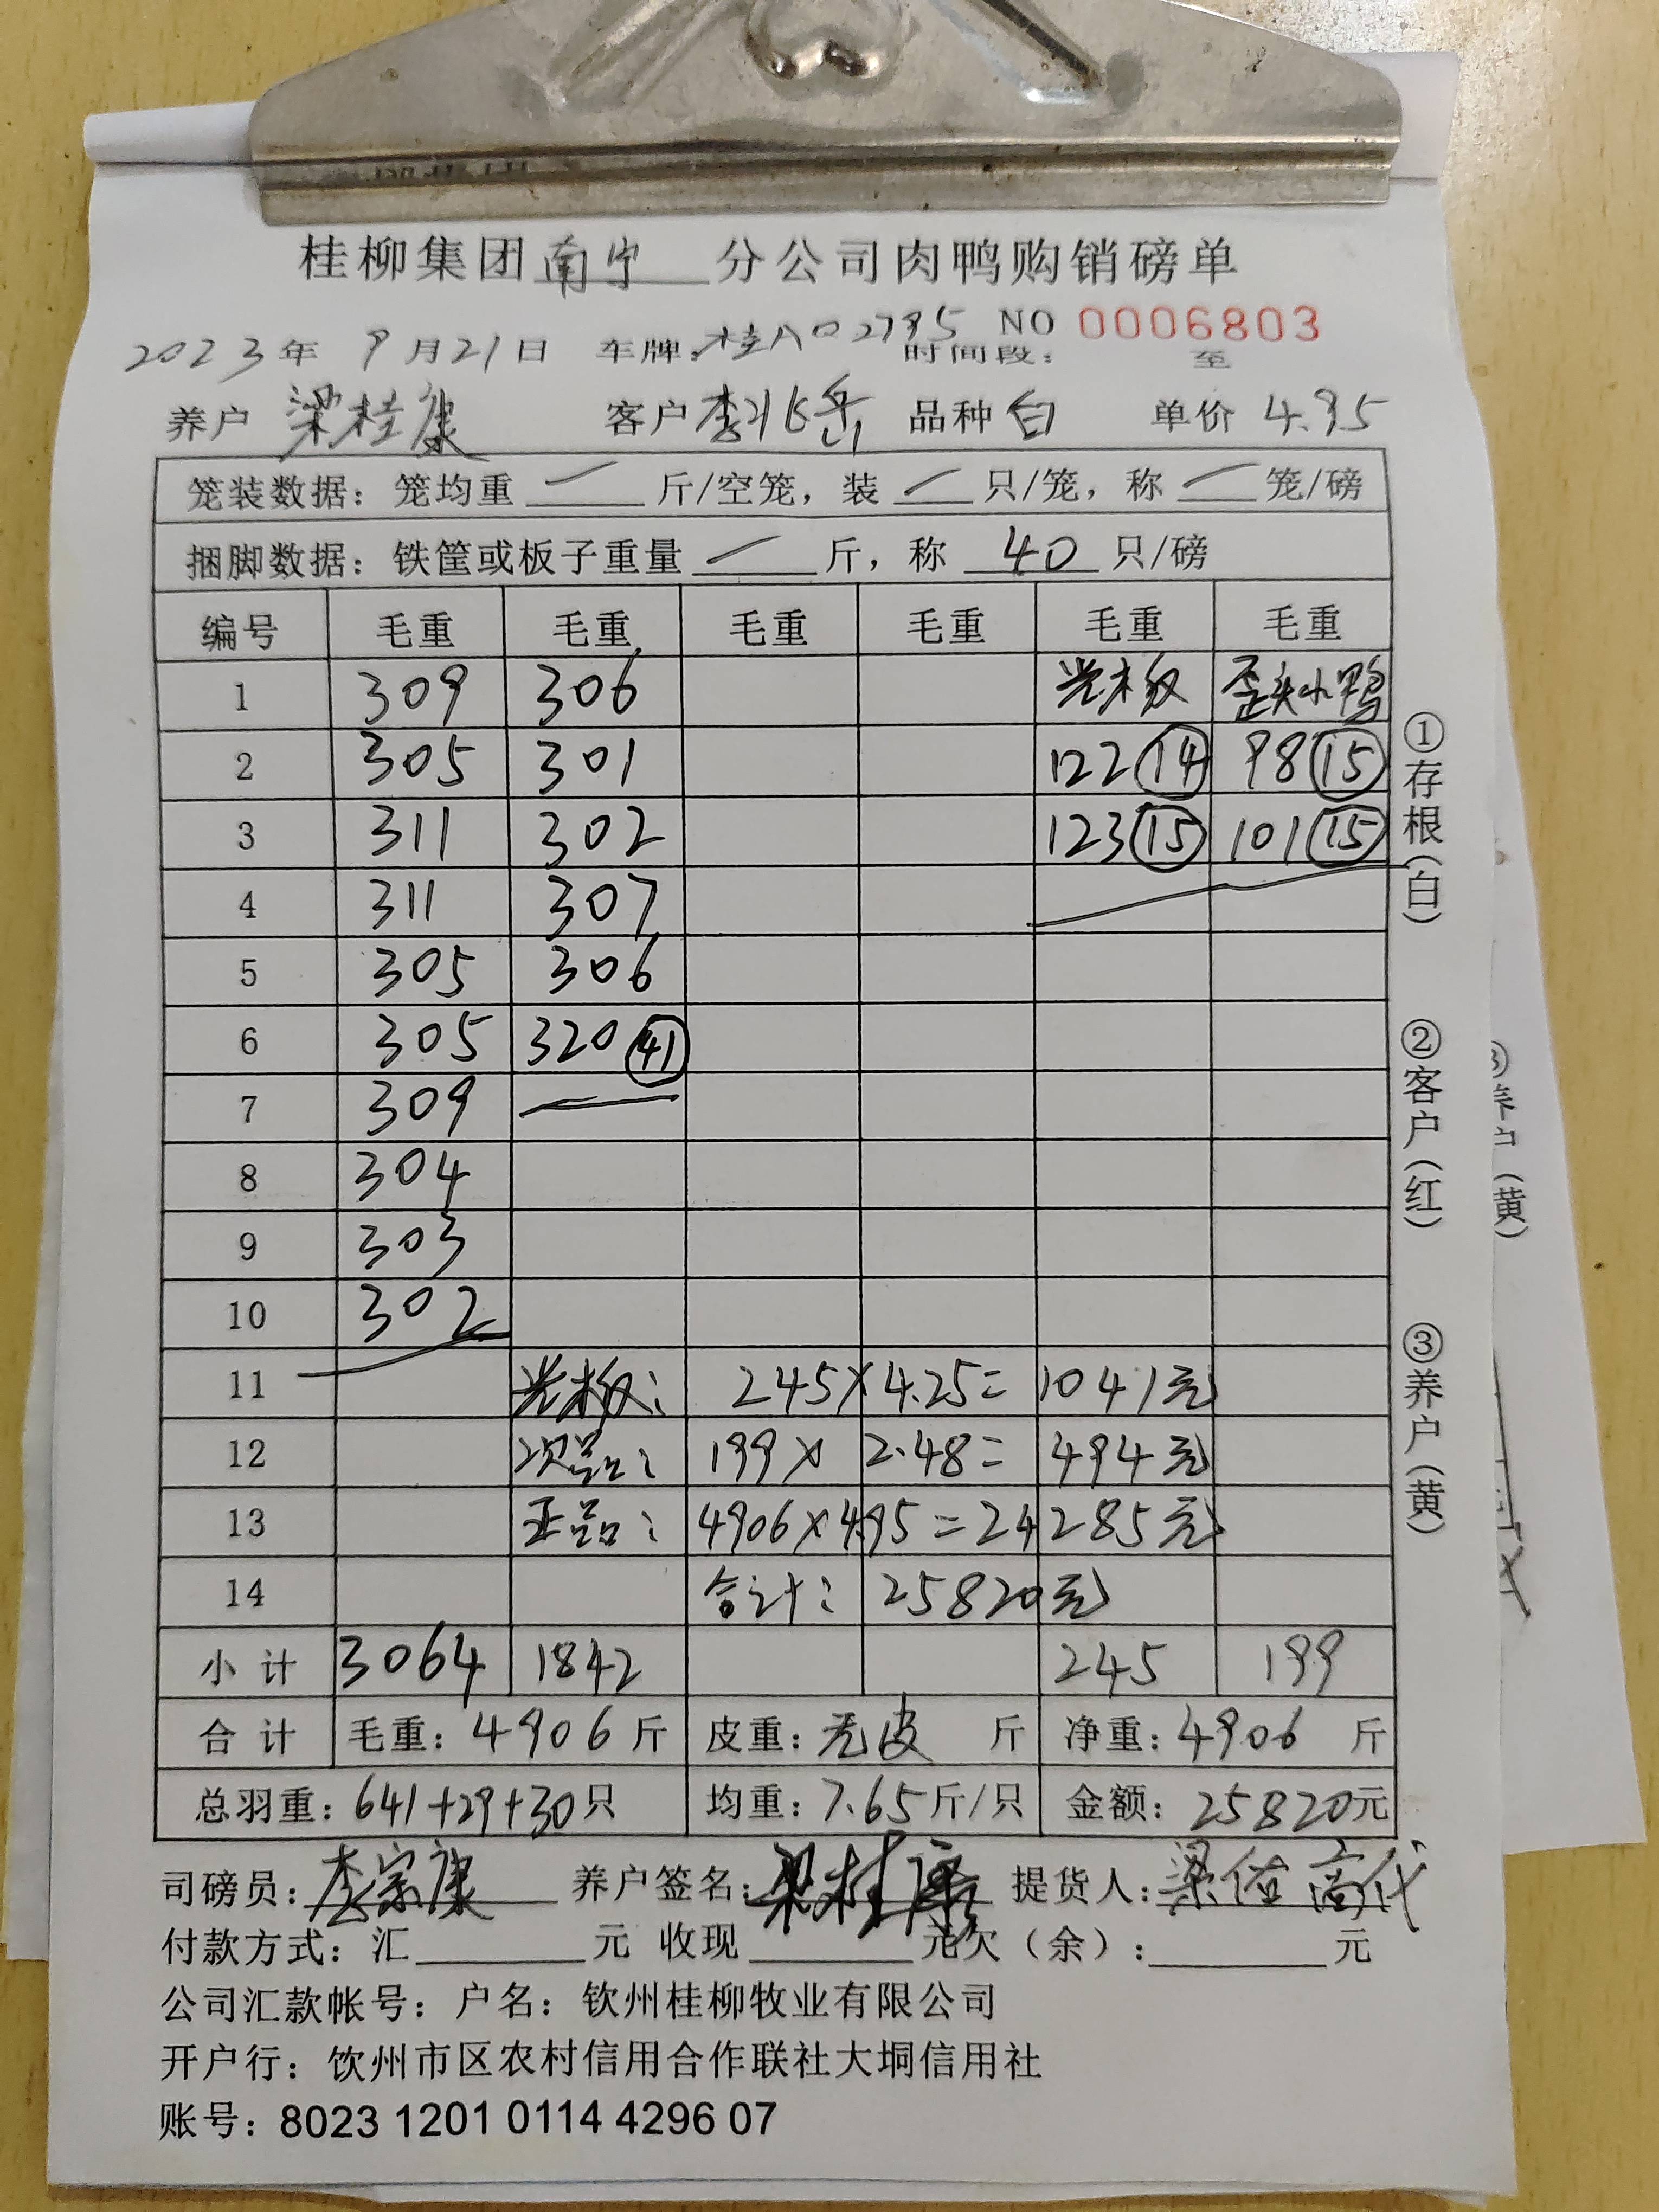 桂柳集团南宁分公司肉鸭购销磅单
NO 0006803
2023年9月21日 车牌:桂A02795 时间段: 至
养户 梁桂康 客户 李北岳 品种 白 单价 4.95
笼装数据: 笼均重 一 斤/空笼, 装 一 只/笼, 称 一 笼/磅
捆脚数据: 铁筐或板子重量 一 斤, 称 40 只/磅
编号 毛重 毛重 毛重 毛重 毛重 毛重
1 309 306 光板 歪头小鸭
2 305 301 122 14 98 15
3 311 302 123 15 101 15
4 311 307
5 305 306
6 305 320 41
7 309
8 304
9 303
10 302
11 光板: 245×4.25= 1041元
12 次品: 199× 2.48= 494元
13 正品: 4906×4.95=24285元
14 合计: 25820元
小计 3064 1842 245 199
合计 毛重: 4906 斤 皮重: 无皮 斤 净重: 4906 斤
总羽重: 641+29+30只 均重: 7.65斤/只 金额: 25820元
司磅员: 李宗康 养户签名: 梁桂康 提货人: 梁 代
付款方式: 汇 元 收现 元欠(余): 元
公司汇款帐号: 户名: 钦州桂柳牧业有限公司
开户行: 饮州市区农村信用合作联社大垌信用社
账号: 8023 1201 0114 4296 07
①存根(白) ②客户(红) ③养户(黄)
③养户(黄)